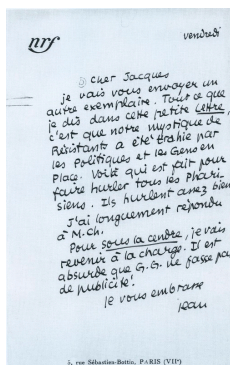 nrf
vendredi
Cher Jacques
je vais vous envoyer un
autre exemplaire. Tout ce que
je dis dans cette petite Lettre,
c'est que notre mystique de
Résistants a été trahie par
les Politiques et les Gens en
Place. Voilà qui est fait pour
faire hurler tous les Phari-
siens. Ils hurlent assez bien
J'ai longuement répondu
à M.Ch.
Pour sous la cendre, je vais
revenir à la charge. Il est
absurde que G.G. ne fasse pas
de publicité!
Je vous embrasse
Jean
5, rue Sébastien-Bottin, PARIS (VIIe)